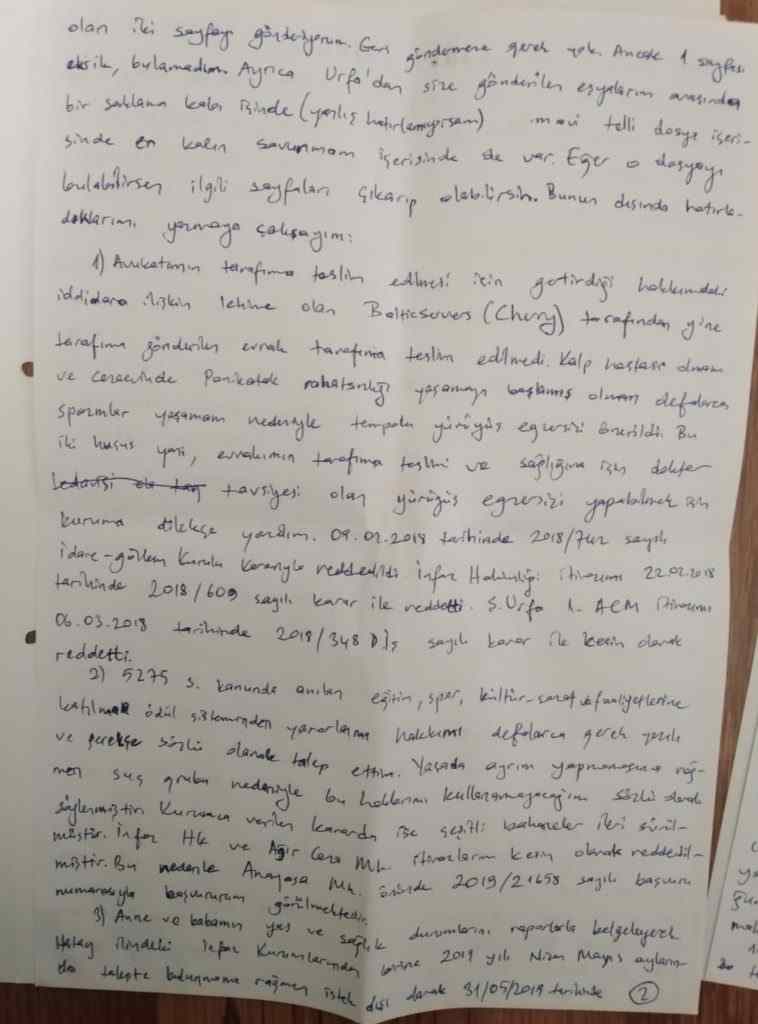 olan iki sayfayı gönderiyorum. Geri göndermene gerek yok. Ancak 1 sayfası
eksik, bulamadım. Ayrıca Urfa'dan size gönderilen eşyaların arasında
bir saklama kabı içinde (yanlış hatırlamıyorsam) mavi telli dosya içeri-
sinde en kalın savunmam içerisinde de var. Eğer o dosyayı
bulabilirsen ilgili sayfaları çıkarıp alabilirsin. Bunun dışında hatırla-
dıklarımı yazmaya çalışayım:
1) Avukatımın tarafıma teslim edilmesi için getirdiği hakkımdaki
iddialara ilişkin lehime olan Balticservers (Cherry) tarafından yine
tarafıma gönderilen evrak tarafıma teslim edilmedi. Kalp hastası olmam
ve cezaevinde Panikatak rahatsızlığı yaşamaya başlamış olmam defalarca
spazmlar yaşamam nedeniyle tempolu yürüyüş egzersizi önerildi. Bu
iki husus yani, evrakımın tarafıma teslimi ve sağlığım için doktor
tavsiyesi olan yürüyüş egzersizi yapabilmek için
kuruma dilekçe yazdım. 09.02.2018 tarihinde 2018/742 sayılı
İdare-gözlem Kurulu Kararıyla reddedildi İnfaz Hakimliği itirazımı 22.02.2018
tarihinde 2018/609 sayılı karar ile reddetti. Ş.Urfa 1. ACM itirazımı
06.03.2018 tarihinde 2018/348 D.İş sayılı karar ile kesin olarak
reddetti.
2) 5275 s. kanunda anılan eğitim, spor, kültür-sanat faaliyetlerine
katılmak ödül sisteminden yararlanma hakkımı defalarca gerek yazılı
ve gerekse sözlü olarak talep ettim. Yasada ayrım yapmamasına rağ-
men suç grubu nedeniyle bu haklarımı kullanamayacağım sözlü olarak
söylenmiştir. Kurumca verilen kararda ise çeşitli bahaneler ileri sürül-
müştür. İnfaz Hk ve Ağır Ceza Mh. itirazlarımı kesin olarak reddetil-
miştir. Bu nedenle Anayasa Mh. önünde 2019/21658 sayılı başvuru
numarasıyla başvurum görülmektedir.
3) Anne ve babamın yaş ve sağlık durumlarını raporlarla belgeleyerek
Hatay ilindeki İnfaz Kurumlarından birine 2019 yılı Nisan Mayıs ayların-
da talepte bulunmama rağmen istek dışı olarak 31/05/2019 tarihinde 2